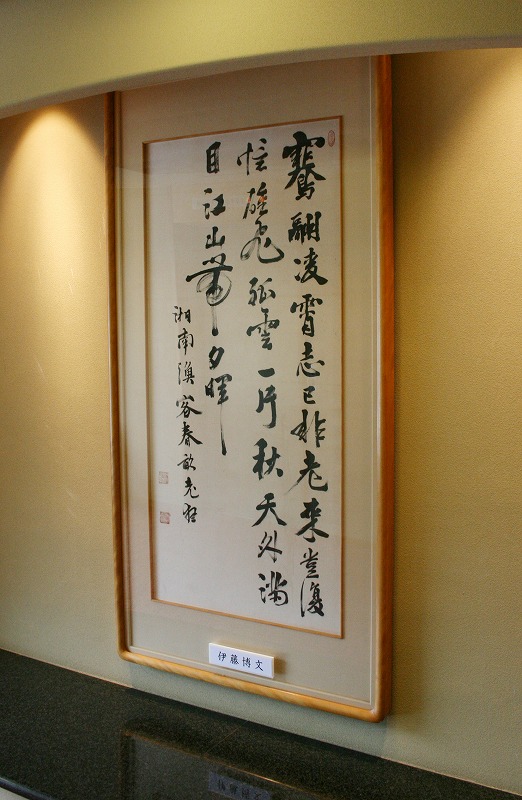 鶱翮凌霄志已非老来豈復
恠雄飛孤雲一片秋天外満
目江山帯夕暉
湘南漁客春畝老
伊藤博文